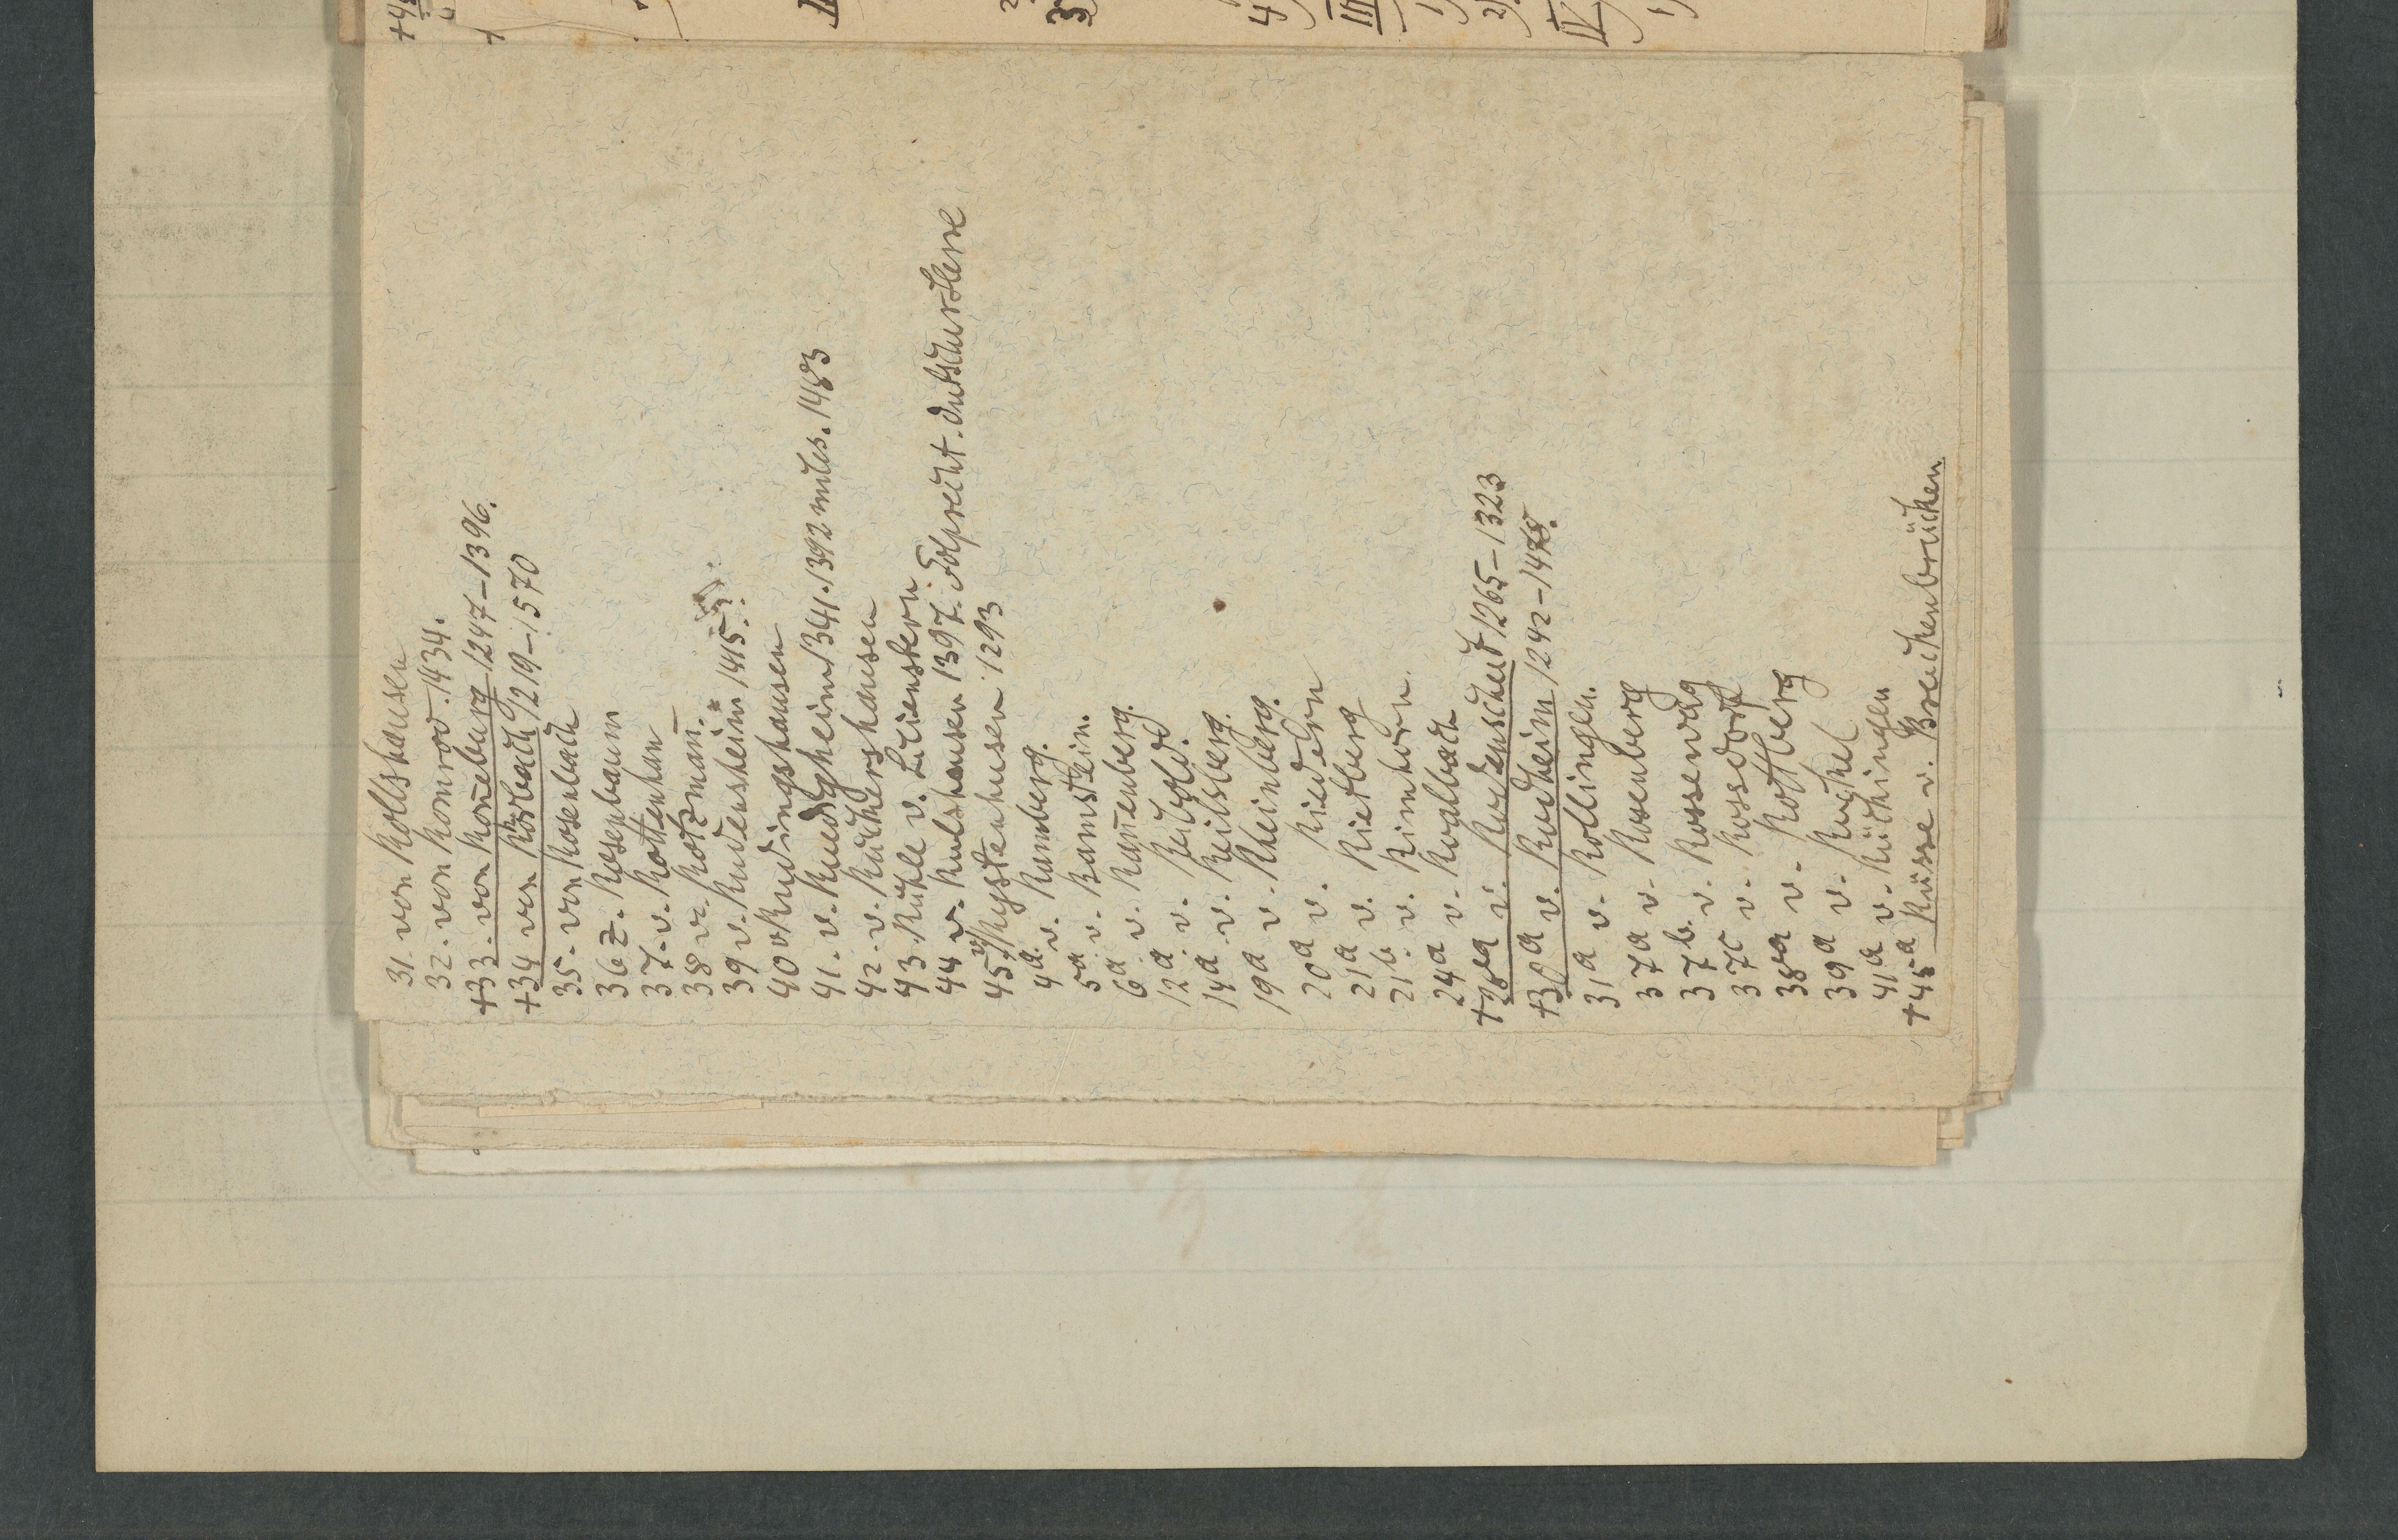 31. von Rolshausen
32. von Romrod. 1434.
+33. von Roneburg 1247-1396.
+34 von Rosbach 1219-1570
35. von Rosenbach
36 z. Rosenbaum
37. v. Rottenhan
38 v. Rotzman.
39 v. Rudensheim 1415.
40 v Rudingshausen
41. v. Ruedigheim 1341. 1392 miles. 1483
42. v. Ruckershausen
43. Ruhle v. Lilienstern
44 v. Rulshausen 1397. Folpreicht. dutschursherre
45. v. Rystenhusen 1293
4a. v. Ramberg.
5a. v. Ramstein.
6a. v. Ranenberg.
12a. v. Reibold.
14a. v. Reilsberg.
19a v. Rheinberg.
20a v. Riedern
21a v. Rietberg
21b. v. Rimhorn.
24a v. Rodlbach
+28a v. Rodenscheit 1265-1323
+30a v. Rodheim 1242-1478.
31a v. Rollingen.
37a v. Rosenberg
37b. v. Rossewag
37c v. Rossdorf
38a v. Rottberg
39a v. Ruckel
41a v. Rückingen
+45a Rüsse v. Bruckenbrücken